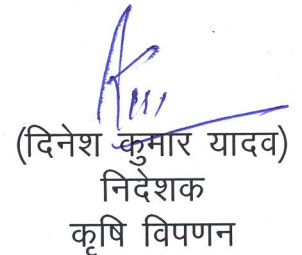 (दिनेश कुमार यादव)
निदेशक
कृषि विपणन